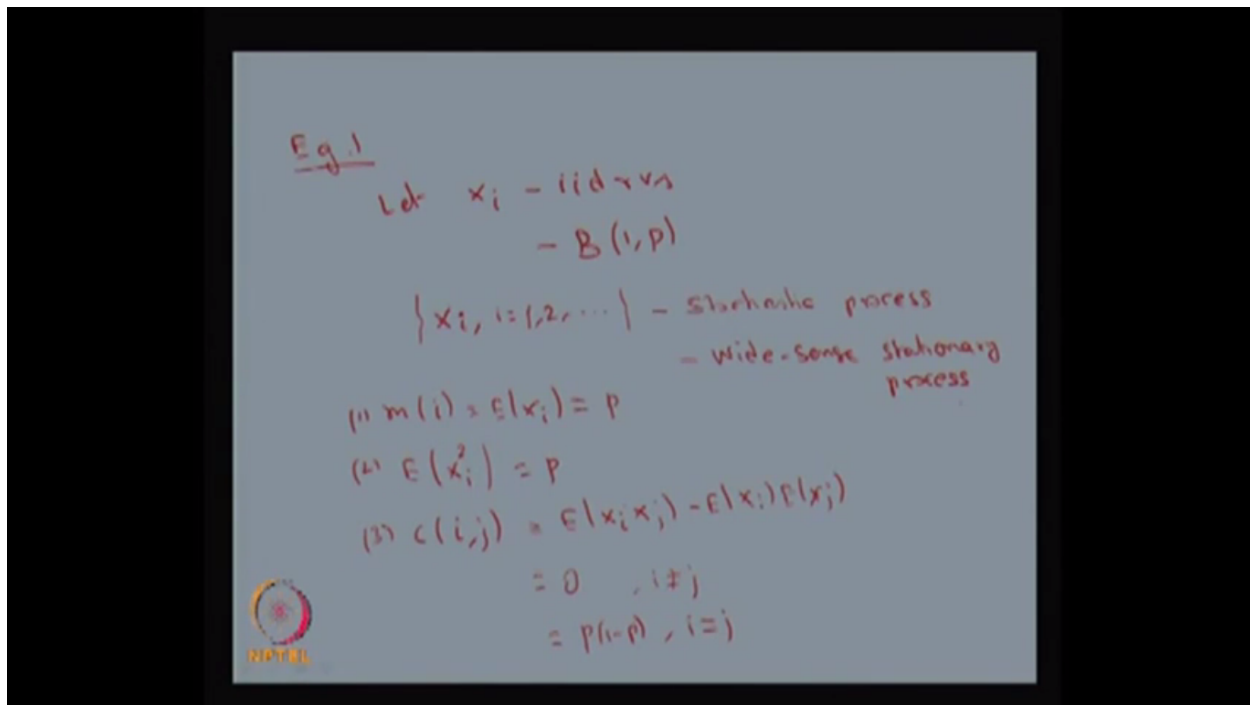 Eg.1
Let xi - iid rvs
- B(1,p)
{xi, i=1,2,...} - Stochastic process
- wide-sense stationary
process
(1) m(i) = E(xi) = p
(2) E(xi²) = p
(3) c(i,j) = E(xi xj) - E(xi)E(xj)
= 0 , i≠j
= p(1-p) , i=j
NPTEL